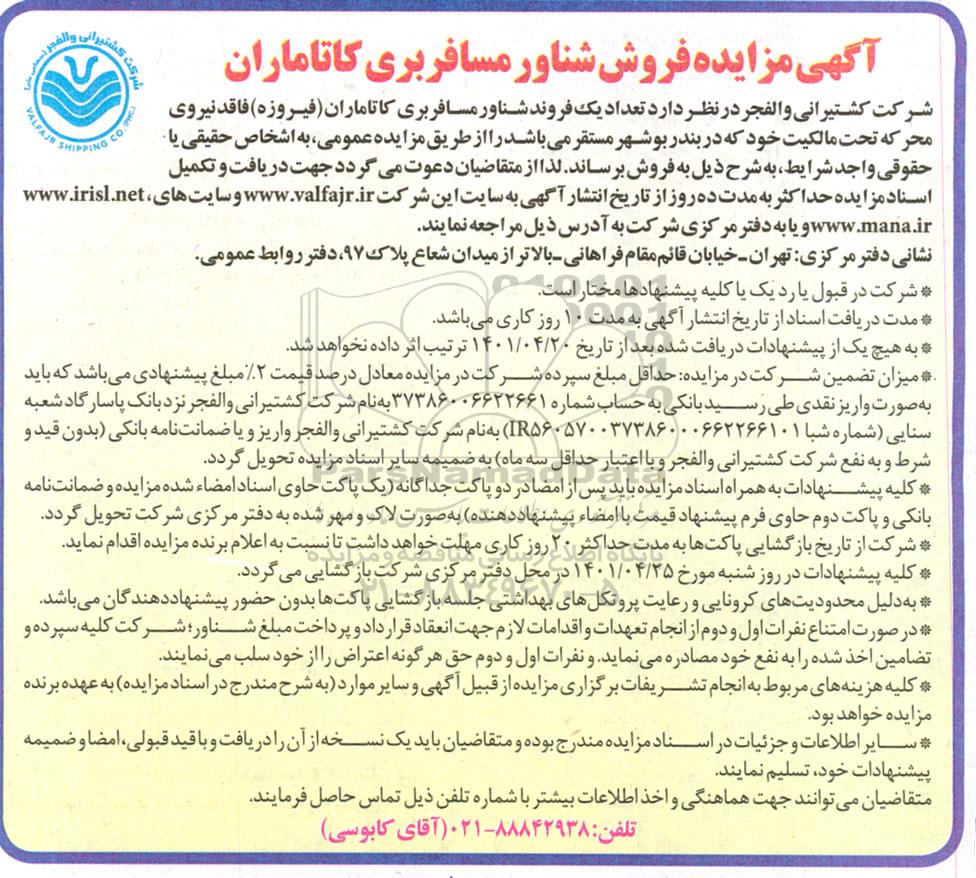 شرکت کشتیرانی والفجر (سهامی عام)
VALFAJR SHIPPING CO.(PHC)
آگهی مزایده فروش شناور مسافربری کاتاماران
شرکت کشتیرانی والفجر در نظر دارد تعداد یک فروند شناور مسافربری کاتاماران (فیروزه) فاقد نیروی
محرکه تحت مالکیت خود که در بندر بوشهر مستقر می‌باشد را از طریق مزایده عمومی، به اشخاص حقیقی یا
حقوقی واجد شرایط، به شرح ذیل به فروش برساند. لذا از متقاضیان دعوت می گردد جهت دریافت و تکمیل
اسناد مزایده حداکثر به مدت ده روز از تاریخ انتشار آگهی به سایت این شرکت www.valfajr.ir و سایت‌های، www.irisl.net
www.mana.ir و یا به دفتر مرکزی شرکت به آدرس ذیل مراجعه نمایند.
نشانی دفتر مرکزی: تهران ـ خیابان قائم مقام فراهانی ـ بالاتر از میدان شعاع پلاک ۹۷، دفتر روابط عمومی.
* شرکت در قبول یا رد یک یا کلیه پیشنهادها مختار است.
* مدت دریافت اسناد از تاریخ انتشار آگهی به مدت ۱۰ روز کاری می‌باشد.
* به هیچ یک از پیشنهادات دریافت شده بعد از تاریخ ۱۴۰۱/۰۴/۲۰ ترتیب اثر داده نخواهد شد.
* میزان تضمین شرکت در مزایده: حداقل مبلغ سپرده شرکت در مزایده معادل درصد قیمت ۲٪ مبلغ پیشنهادی می‌باشد که باید
به‌صورت واریز نقدی طی رسید بانکی به حساب شماره ۳۷۳۸۶۰۰۶۶۲۲۶۶۱ به‌نام شرکت کشتیرانی والفجر نزد بانک پاسارگاد شعبه
سنایی (شماره شبا IR۵۶۰۵۷۰۰۳۷۳۸۶۰۰۰۶۶۲۲۶۶۱۰۱) به‌نام شرکت کشتیرانی والفجر واریز و یا ضمانت‌نامه بانکی (بدون قید و
شرط و به نفع شرکت کشتیرانی والفجر و با اعتبار حداقل سه ماه) به ضمیمه سایر اسناد مزایده تحویل گردد.
* کلیه پیشنهادات به همراه اسناد مزایده باید پس از امضا در دو پاکت جداگانه (یک پاکت حاوی اسناد امضاء شده مزایده و ضمانت‌نامه
بانکی و پاکت دوم حاوی فرم پیشنهاد قیمت با امضاء پیشنهاددهنده) به‌صورت لاک و مهر شده به دفتر مرکزی شرکت تحویل گردد.
* شرکت از تاریخ بازگشایی پاکت‌ها به مدت حداکثر ۲۰ روز کاری مهلت خواهد داشت تا نسبت به اعلام برنده مزایده اقدام نماید.
* کلیه پیشنهادات در روز شنبه مورخ ۱۴۰۱/۰۴/۲۵ در محل دفتر مرکزی شرکت بازگشایی می‌گردد.
* به‌دلیل محدودیت‌های کرونایی و رعایت پروتکل‌های بهداشتی جلسه بازگشایی پاکت‌ها بدون حضور پیشنهاددهندگان می‌باشد.
* در صورت امتناع نفرات اول و دوم از انجام تعهدات و اقدامات لازم جهت انعقاد قرارداد و پرداخت مبلغ شناور؛ شرکت کلیه سپرده و
تضامین اخذ شده را به نفع خود مصادره می‌نماید. و نفرات اول و دوم حق هرگونه اعتراض را از خود سلب می‌نمایند.
* کلیه هزینه‌های مربوط به انجام تشریفات برگزاری مزایده از قبیل آگهی و سایر موارد (به شرح مندرج در اسناد مزایده) به عهده برنده
مزایده خواهد بود.
* سایر اطلاعات و جزئیات در اسناد مزایده مندرج بوده و متقاضیان باید یک نسخه از آن را دریافت و با قید قبولی، امضا و ضمیمه
پیشنهادات خود، تسلیم نمایند.
متقاضیان می‌توانند جهت هماهنگی و اخذ اطلاعات بیشتر با شماره تلفن ذیل تماس حاصل فرمایند.
تلفن: ۸۸۸۴۲۹۳۸-۰۲۱ (آقای کابوسی)
ParsNamadData
پایگاه اطلاع رسانی مناقصه و مزایده
۰۲۱-۸۸۳۴۹۶۷۰-۵